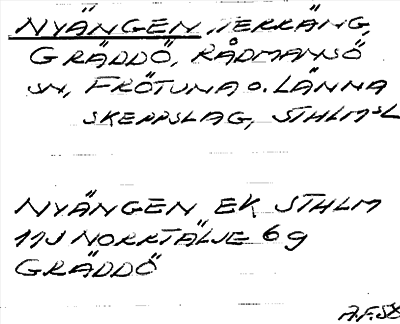 NYÄNGEN, TERRÄNG,
GRÄDDÖ, RÅDMANSÖ
SN, FRÖTUNA O. LÄNNA
SKEPPSLAG, STHLMSL
NYÄNGEN EK STHLM
11J NORRTÄLJE 6g
GRÄDDÖ
A.F.58